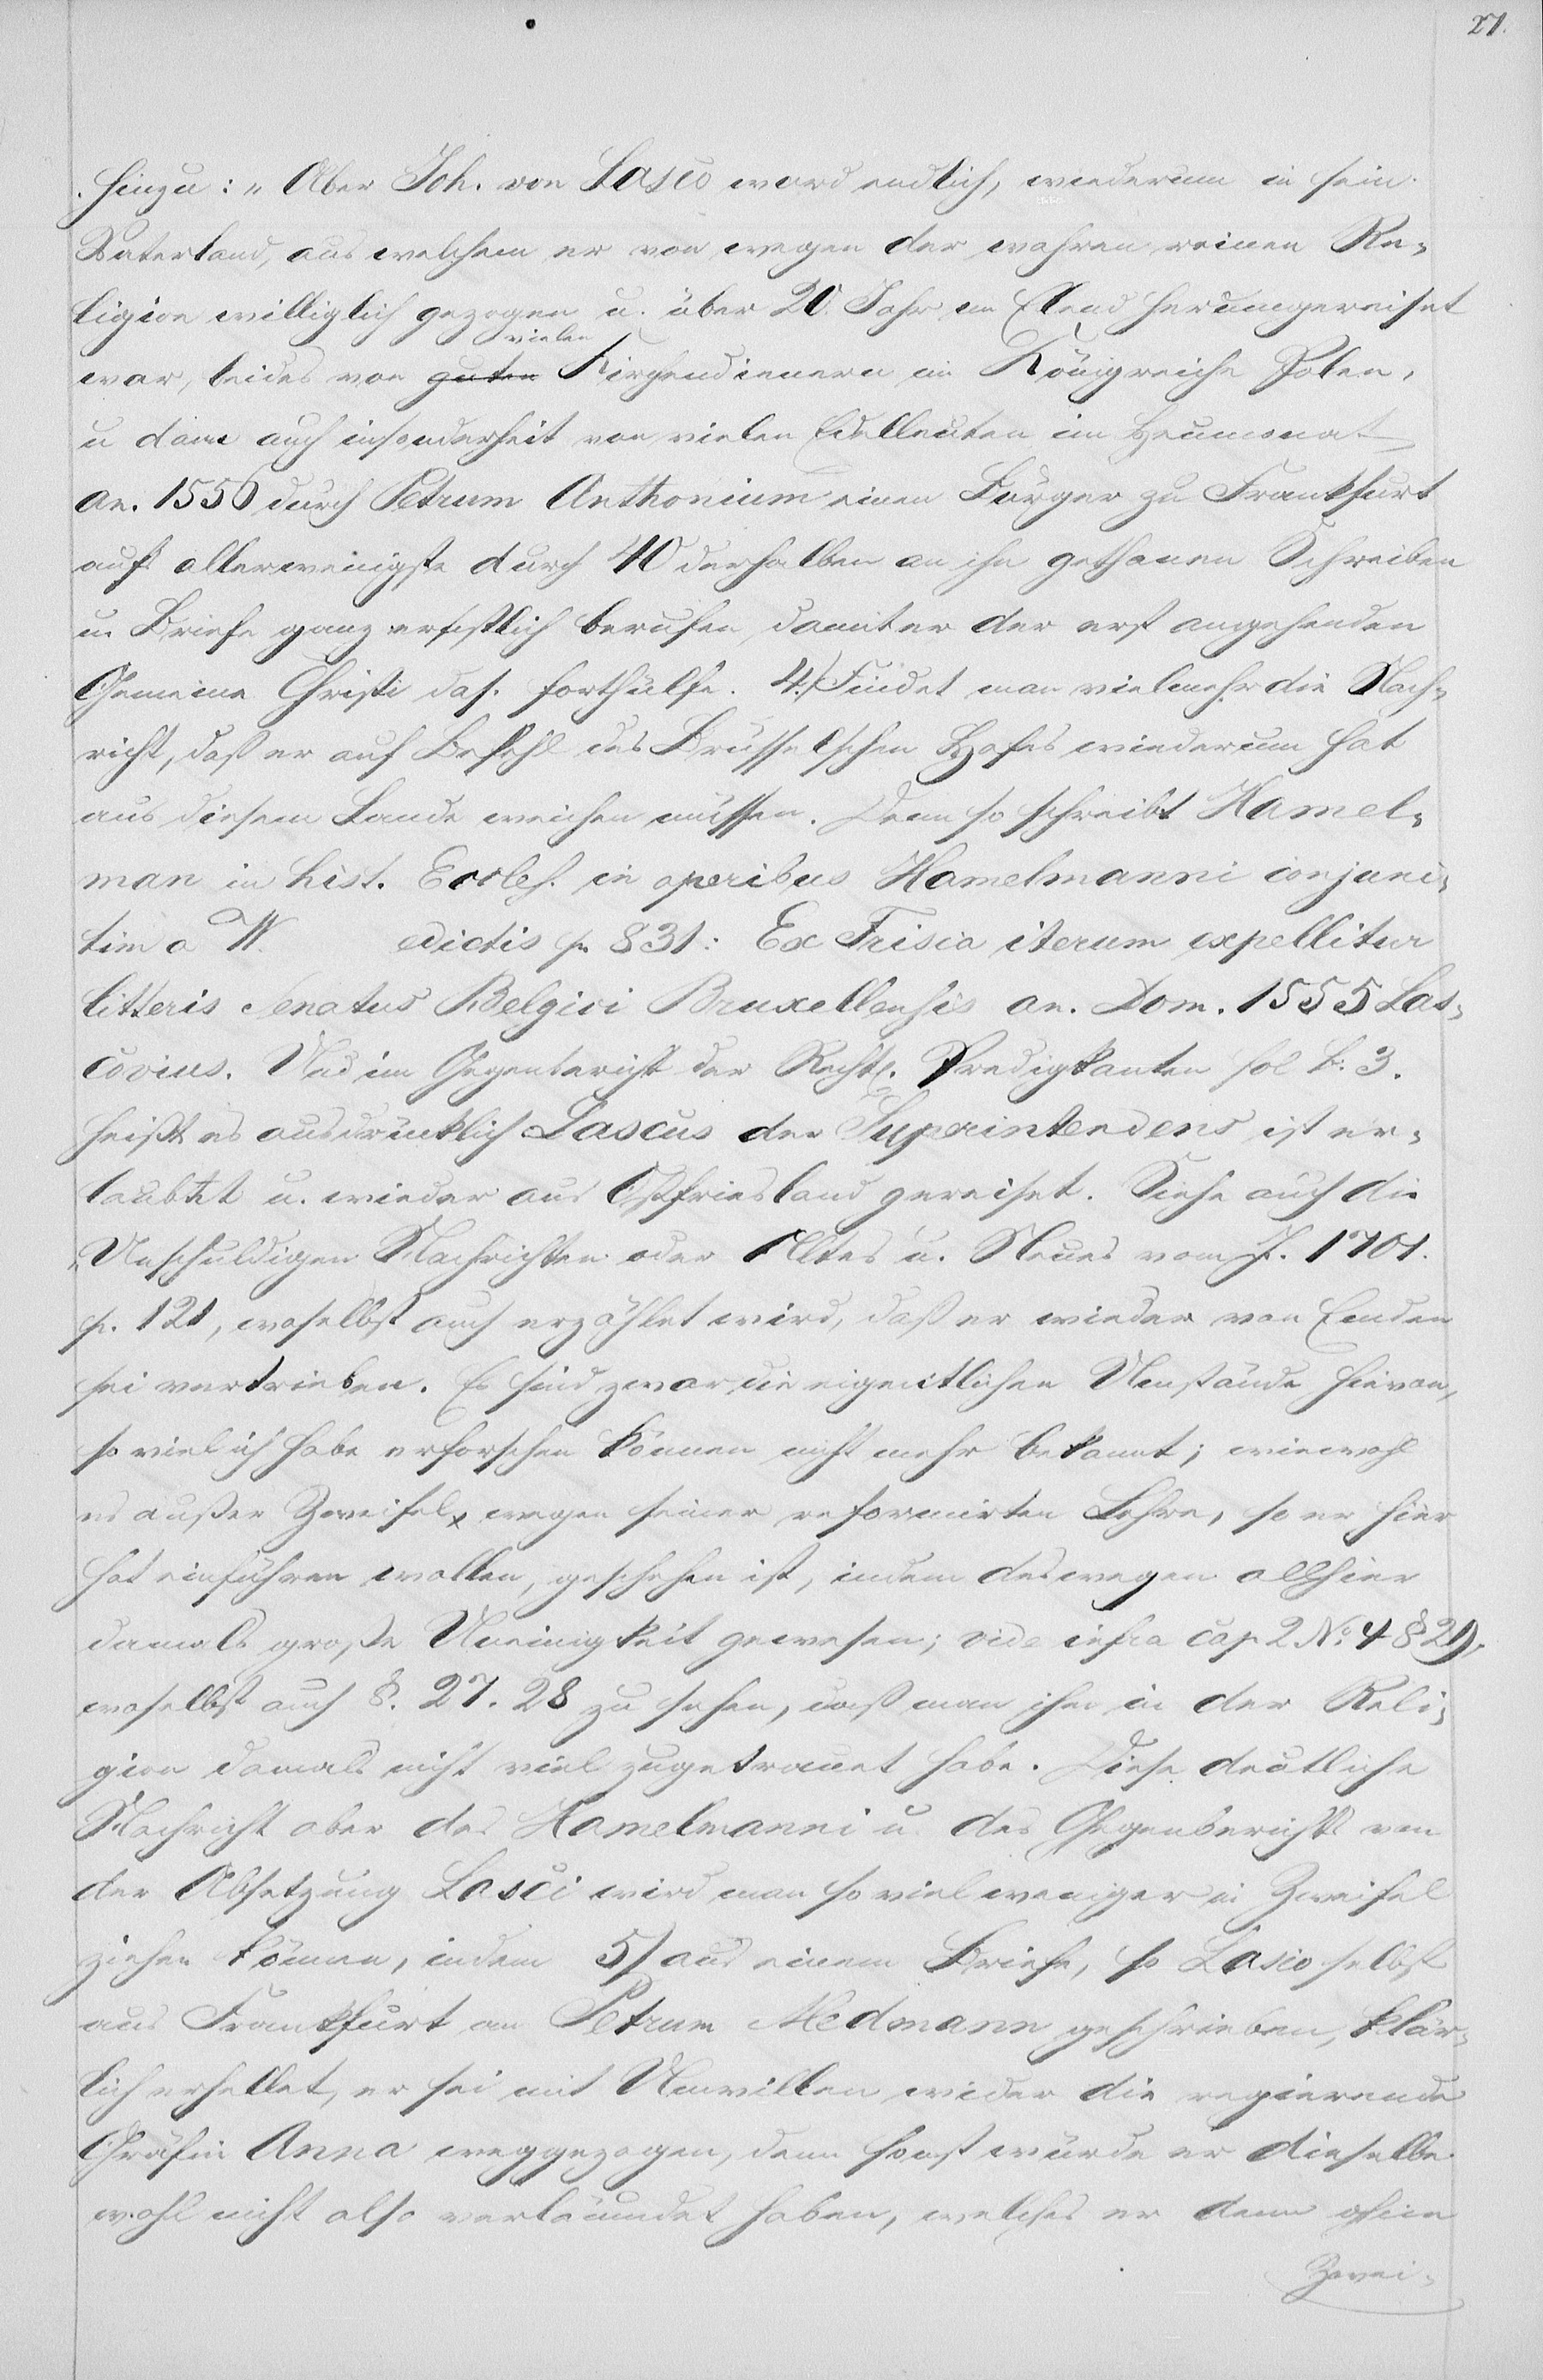 27.
hinzu: „Aber Joh. von Lasco ward endlich, wiederum in sein
Vaterland, aus welchem er von wegen der wahren reinen Re-
ligion williglich gezogen u. über 20 Jahr im Elend herumgereiset
vielen
war, beides von guten Kirchendienern im Königreiche Polen,
u dann auch insonderheit von vielen Edelleuten im Heumonat
an. 1556 durch Petrum Anthonium einen Bürger zu Frankfurt
aufs allerwenigste durch 40 derhalben an ihn gethanen Schreiben
u. Briefe ganz ernstlich berufen, damit er der erst angehenden
Gemeine Christi das. forthülfe. 4./ Findet man vielmehr die Nach-
richt, daß er auf Befehl des Brüsselschen Hofes wiederum hat
aus diesem Lande weichen müssen. Denn so schreibt Hamel-
man in hist. Eccles. in operibus Hamelmanni conjunc-
tim a W. edictis p. 831: Ex Frisia iterum expellitur
litteris Senatus Belgici Bruxellensis an. Dom. 1555 Las-
covius. Und im Gegenbericht der Predigkanten fol b. 3.
heißt es ausdrücklich Lascus der Superintendens ist er-
laubtet u. wieder aus Ostfriesland gereiset. Siehe auch die
„Unschuldigen Nachrichten oder Altes u. Neues vom J. 1701.
p. 121, woselbst auch erzählet wird, daß er wieder von Emden
sei vertrieben. Es sind zwar die eigentlichen Umstände hievon,
so viel ich habe erforschen können nicht mehr bekannt; wiewohl
es außer Zweifel x wegen seiner reformirten Lehre, so er hier
hat einführen wollen, geschehen ist, indem deswegen allhier
damals große Uneinigkeit gewesen; vide infra cap 2 No. 4 § 21),
woselbst auch §. 27. 28 zu sehen, daß man ihm in der Reli-
gion damals nicht viel zugetrauet habe. Diese deutliche
Nachricht aber des Hamelmanni u. des Gegenberichts von
der Absetzung Lasci wird man so viel weniger in Zweifel
ziehen können, indem 5/ aus einem Briefe, so Lasco selbst
aus Frankfurt an Petrum Medmann geschrieben, klär-
lich erhellet, er sei mit Unwillen wider die regierende
Gräfin Anna weggezogen, denn sonst würde er dieselbe
wohl nicht also verläumdet haben, welches er denn ohne
Zwei-